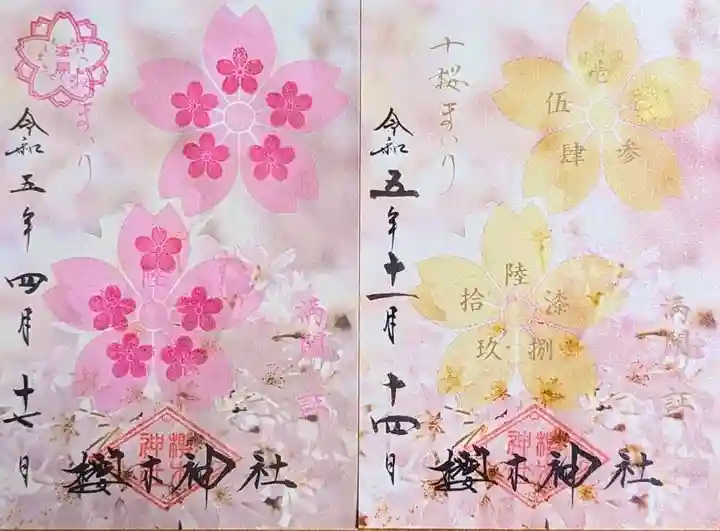 令和五年四月十七日
陸
満開之証
櫻木神社
十桜まいり
令和五年十一月十四日
壱
伍
参
肆
陸
拾
漆
玖
捌
満開之証
櫻木神社